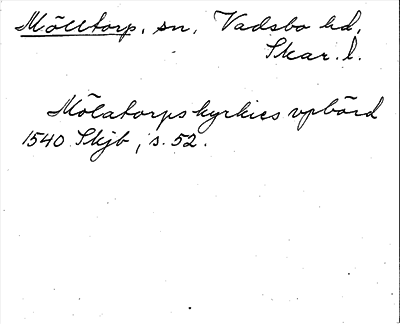 Mölltorp. sn. Vadsbo hd.
Skar. l.
Mölatorps kyrkies vpbörd
1540 Skjb, s. 52.